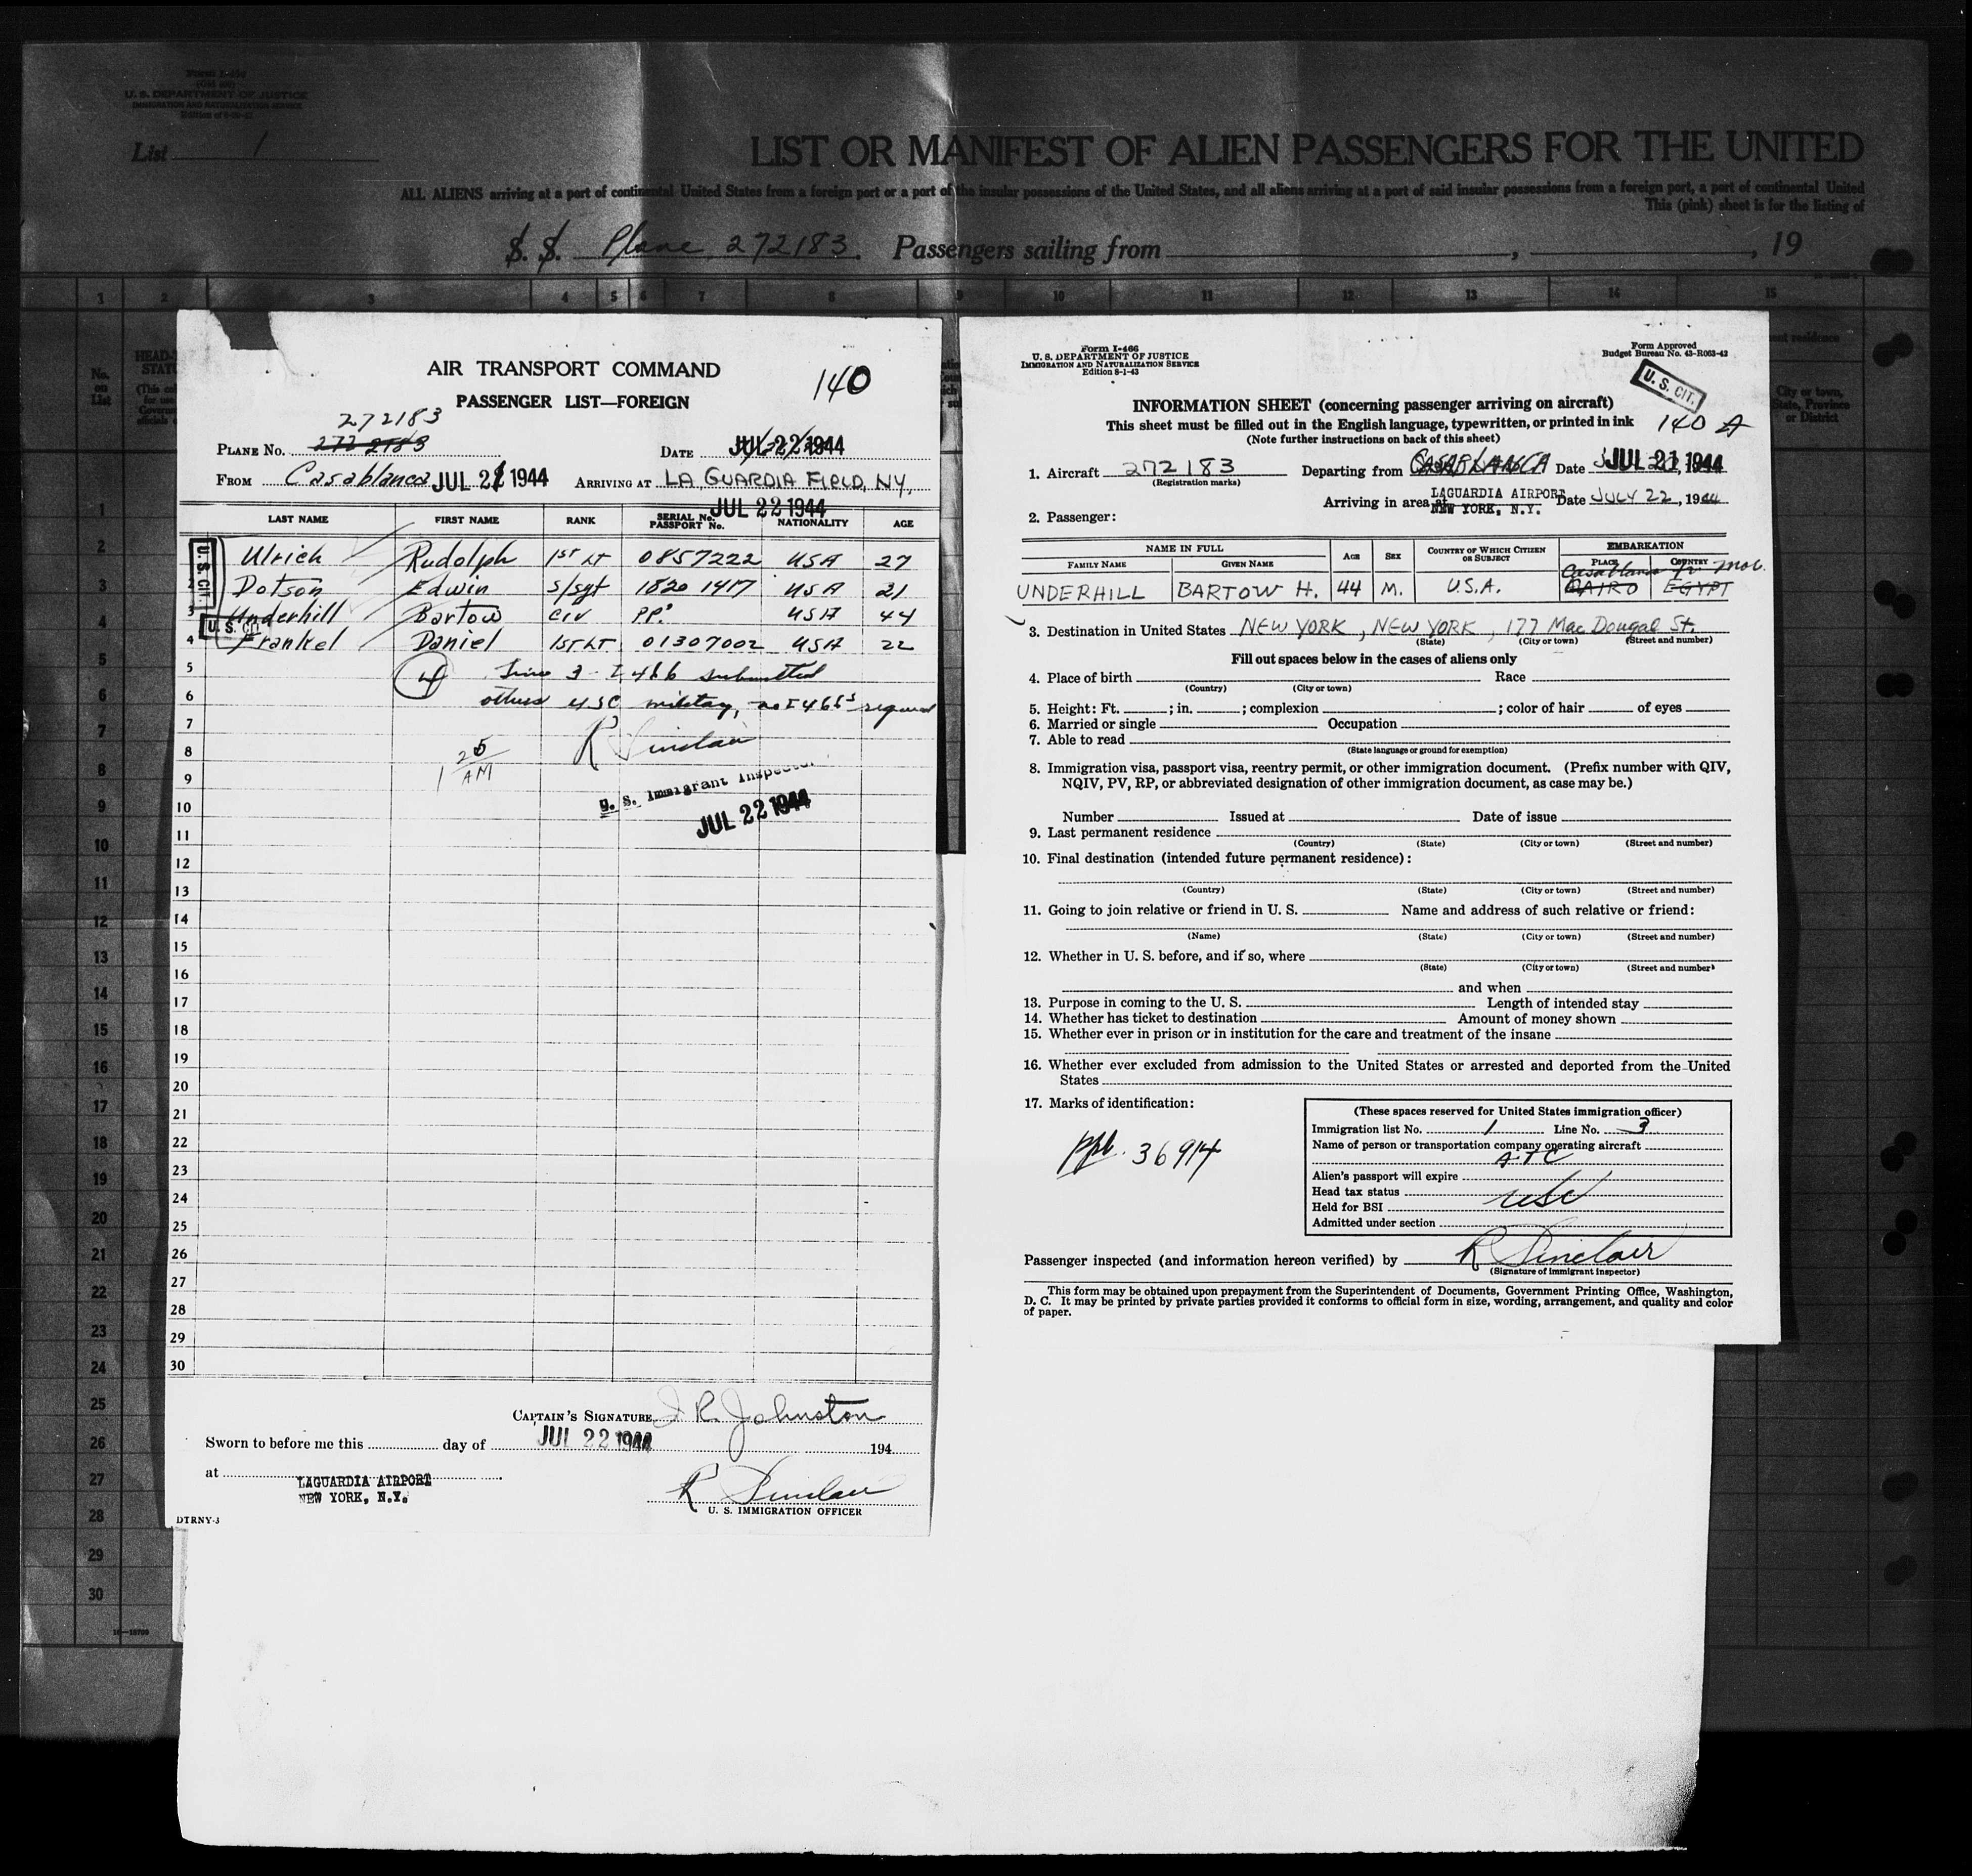 Form I-466
U. S. DEPARTMENT OF JUSTICE
IMMIGRATION AND NATURALIZATION SERVICE
List 1
LIST OR MANIFEST OF ALIEN PASSENGERS FOR THE UNITED
ALL ALIENS arriving at a port of continental United States from a foreign port or a port of the insular possessions of the United States, and all aliens arriving at a port of said insular possessions from a foreign port, a port of continental United
This (pink) sheet is for the listing of
S. S. Plane 272183. Passengers sailing from , , 19
1 2 3 4 5 6 7 8 9 10 11 12 13 14 15
No. on List
City or town, State, Province or District
AIR TRANSPORT COMMAND
140
PASSENGER LIST—FOREIGN
272183
PLANE NO. 272 2183 DATE JUL 22 1944
FROM Casablanca JUL 21 1944 ARRIVING AT LA GUARDIA FIELD, NY,
JUL 22 1944
LAST NAME FIRST NAME RANK SERIAL No. PASSPORT No. NATIONALITY AGE
U. S. CIT.
Ulrich Rudolph 1ST LT 0857222 USA 27
2 Dotson Edwin S/sgt 1820 1417 USA 21
3 Underhill Bartow CIV PP. USA 44
U. S. CIT
4 Frankel Daniel 1ST LT 01307002 USA 22
5 4 Line 3 - I 466 submitted
6 others USC military, no I 466s required
7 R Sinclair
8 1 25 AM
9 U. S. Immigrant Inspector
10 JUL 22 1944
11
12
13
14
15
16
17
18
19
20
21
22
23
24
25
26
27
28
29
30
CAPTAIN'S SIGNATURE J R Johnston
Sworn to before me this day of JUL 22 1944 194
at LAGUARDIA AIRPORT
NEW YORK, N.Y.
R Sinclair
U. S. IMMIGRATION OFFICER
DTRNY-3
Form I-466
U. S. DEPARTMENT OF JUSTICE
IMMIGRATION AND NATURALIZATION SERVICE
Edition 8-1-43
Form Approved
Budget Bureau No. 43-R063-42
U. S. CIT.
INFORMATION SHEET (concerning passenger arriving on aircraft)
This sheet must be filled out in the English language, typewritten, or printed in ink 140 A
(Note further instructions on back of this sheet)
1. Aircraft 272183 Departing from CASABLANCA Date JUL 21 1944
(Registration marks)
Arriving in area at LAGUARDIA AIRPORT NEW YORK, N.Y. Date JULY 22, 1944
2. Passenger:
NAME IN FULL AGE SEX COUNTRY OF WHICH CITIZEN OR SUBJECT EMBARKATION
FAMILY NAME GIVEN NAME PLACE COUNTRY
Casablanca Fr Mor.
UNDERHILL BARTOW H. 44 M. U.S.A. CAIRO EGYPT
3. Destination in United States NEW YORK, NEW YORK, 177 Mac Dougal St.
(State) (City or town) (Street and number)
Fill out spaces below in the cases of aliens only
4. Place of birth Race
(Country) (City or town)
5. Height: Ft. ; in. ; complexion ; color of hair of eyes
6. Married or single Occupation
7. Able to read
(State language or ground for exemption)
8. Immigration visa, passport visa, reentry permit, or other immigration document. (Prefix number with QIV,
NQIV, PV, RP, or abbreviated designation of other immigration document, as case may be.)
Number Issued at Date of issue
9. Last permanent residence
(Country) (State) (City or town) (Street and number)
10. Final destination (intended future permanent residence):
(Country) (State) (City or town) (Street and number)
11. Going to join relative or friend in U. S. Name and address of such relative or friend:
(Name) (State) (City or town) (Street and number)
12. Whether in U. S. before, and if so, where
(State) (City or town) (Street and number)
and when
13. Purpose in coming to the U. S. Length of intended stay
14. Whether has ticket to destination Amount of money shown
15. Whether ever in prison or in institution for the care and treatment of the insane
16. Whether ever excluded from admission to the United States or arrested and deported from the United
States
17. Marks of identification:
ppt. 36914
(These spaces reserved for United States immigration officer)
Immigration list No. 1 Line No. 3
Name of person or transportation company operating aircraft
ATC
Alien's passport will expire
Head tax status USC
Held for BSI
Admitted under section
Passenger inspected (and information hereon verified) by R Sinclair
(Signature of immigrant inspector)
This form may be obtained upon prepayment from the Superintendent of Documents, Government Printing Office, Washington,
D. C. It may be printed by private parties provided it conforms to official form in size, wording, arrangement, and quality and color
of paper.
1
2
3
4
5
6
7
8
9
10
11
12
13
14
15
16
17
18
19
20
21
22
23
24
25
26
27
28
29
30